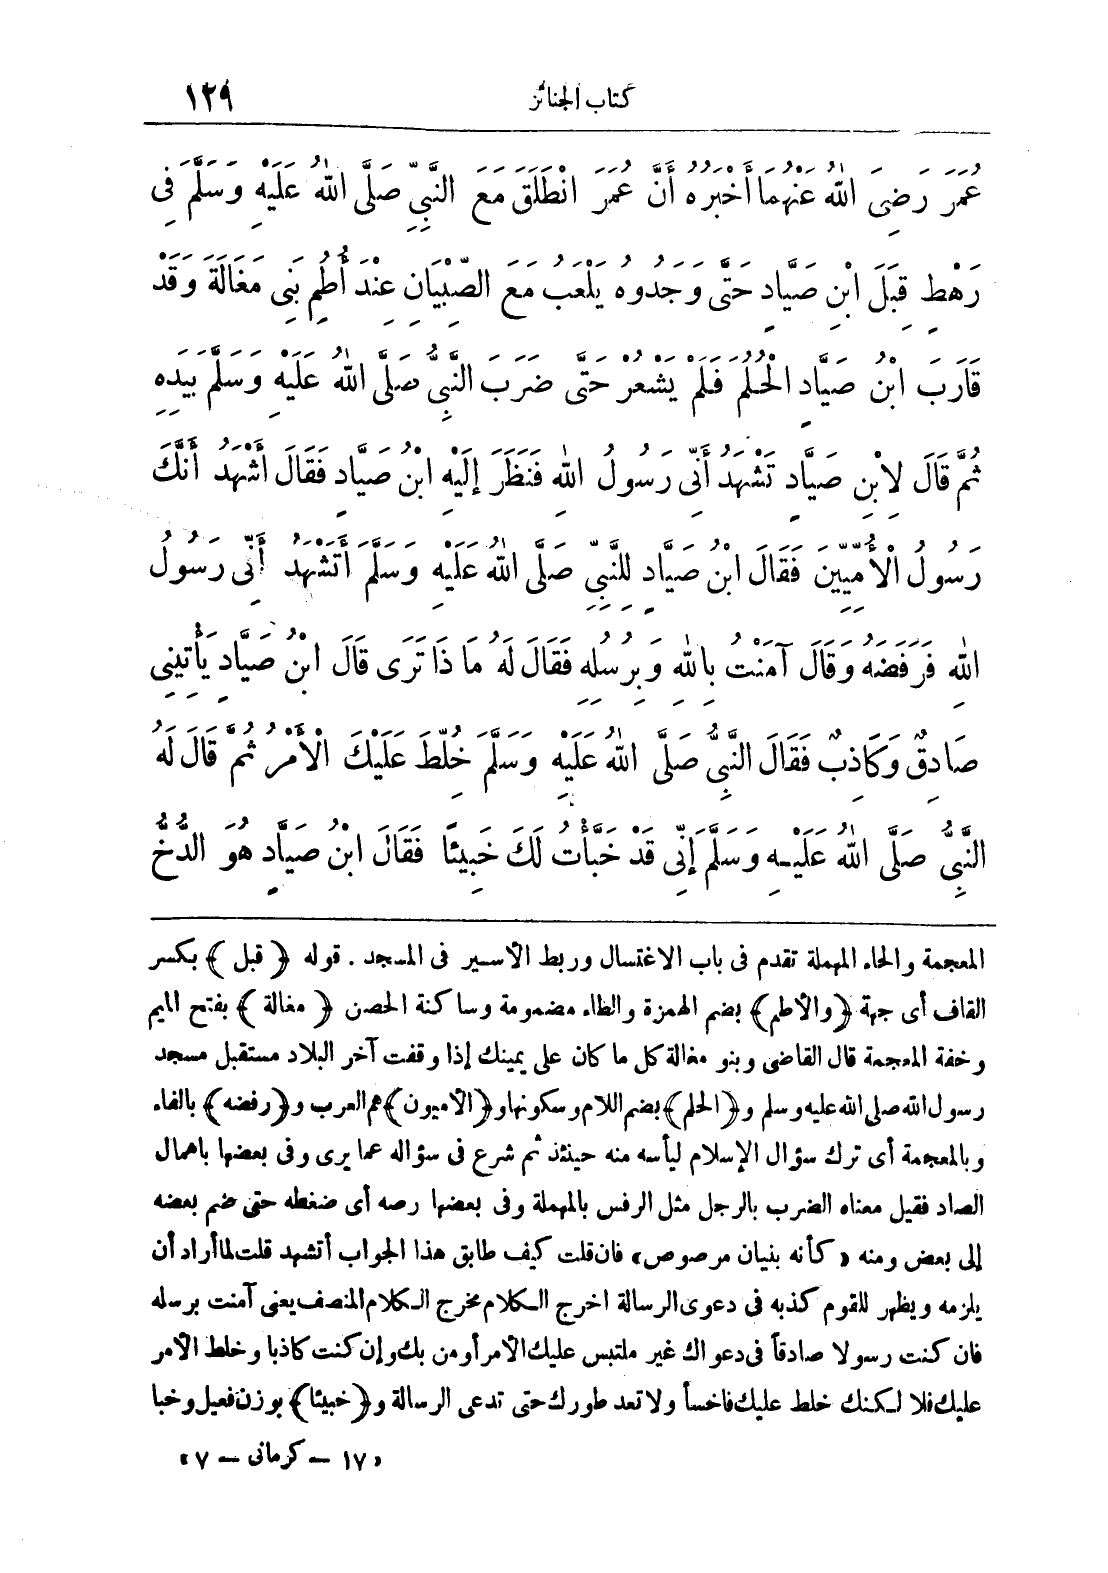 كتاب الجنائز ١٢٩
عُمَرَ رَضِىَ اللّٰهُ عَنْهُمَا أَخْبَرَهُ أَنَّ عُمَرَ انْطَلَقَ مَعَ النَّبِىِّ صَلَّى اللّٰهُ عَلَيْهِ وَسَلَّمَ فِى
رَهْطٍ قِبَلَ ابْنِ صَيَّادٍ حَتَّى وَجَدُوهُ يَلْعَبُ مَعَ الصِّبْيَانِ عِنْدَ أُطُمِ بَنِى مَغَالَةَ وَقَدْ
قَارَبَ ابْنُ صَيَّادٍ الْحُلُمَ فَلَمْ يَشْعُرْ حَتَّى ضَرَبَ النَّبِىُّ صَلَّى اللّٰهُ عَلَيْهِ وَسَلَّمَ بِيَدِهِ
ثُمَّ قَالَ لِابْنِ صَيَّادٍ تَشْهَدُ أَنِّى رَسُولُ اللّٰهِ فَنَظَرَ إِلَيْهِ ابْنُ صَيَّادٍ فَقَالَ أَشْهَدُ أَنَّكَ
رَسُولُ الْأُمِّيِّينَ فَقَالَ ابْنُ صَيَّادٍ لِلنَّبِىِّ صَلَّى اللّٰهُ عَلَيْهِ وَسَلَّمَ أَتَشْهَدُ أَنِّى رَسُولُ
اللّٰهِ فَرَفَضَهُ وَقَالَ آمَنْتُ بِاللّٰهِ وَبِرُسُلِهِ فَقَالَ لَهُ مَا ذَا تَرَى قَالَ ابْنُ صَيَّادٍ يَأْتِينِى
صَادِقٌ وَكَاذِبٌ فَقَالَ النَّبِىُّ صَلَّى اللّٰهُ عَلَيْهِ وَسَلَّمَ خُلِّطَ عَلَيْكَ الْأَمْرُ ثُمَّ قَالَ لَهُ
النَّبِىُّ صَلَّى اللّٰهُ عَلَيْهِ وَسَلَّمَ إِنِّى قَدْ خَبَأْتُ لَكَ خَبِيئًا فَقَالَ ابْنُ صَيَّادٍ هُوَ الدُّخُّ
المعجمة والحاء المهملة تقدم فى باب الاغتسال وربط الأسير فى المسجد . قوله ﴿ قبل ﴾ بكسر
القاف أى جهة ﴿والأطم﴾ بضم الهمزة والطاء مضمومة وساكنة الحصن ﴿ مغالة ﴾ بفتح الميم
وخفة المعجمة قال القاضى وبنو مغالة كل ما كان على يمينك إذا وقفت آخر البلاد مستقبل مسجد
رسول الله صلى الله عليه وسلم و﴿الحلم﴾ بضم اللام وسكونها و﴿الأميون﴾ هم العرب و﴿رفضه﴾ بالفاء
وبالمعجمة أى ترك سؤال الإسلام ليأسه منه حينئذ ثم شرع فى سؤاله عما يرى وفى بعضها باهمال
الصاد فقيل معناه الضرب بالرجل مثل الرفس بالمهملة وفى بعضها رصه أى ضغطه حتى ضم بعضه
إلى بعض ومنه « كأنه بنيان مرصوص» فان قلت كيف طابق هذا الجواب أتشهد قلت لما أراد أن
يلزمه ويظهر للقوم كذبه فى دعوى الرسالة اخرج الكلام مخرج الكلام المنصف يعنى آمنت برسله
فان كنت رسولا صادقاً فى دعواك غير ملتبس عليك الأمر أومن بك وإن كنت كاذبا وخلط الأمر
عليك فلا لكنك خلط عليك فاخسأ ولا تعد طورك حتى تدعى الرسالة و﴿خبيئا﴾ بوزن فعيل وخبا
« ١٧ – كرمانى – ٧ »